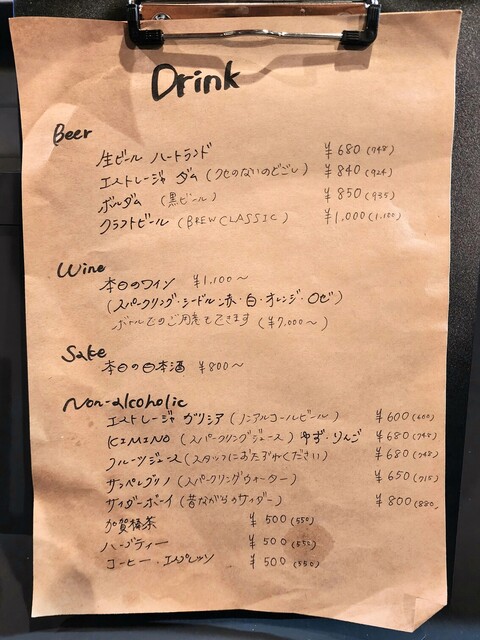 Drink
Beer
生ビール ハートランド ¥680(748)
エストレージャ ダム (クセのないのどごし) ¥840(924)
ボルダム (黒ビール) ¥850(935)
クラフトビール (BREW CLASSIC) ¥1,000(1,100)
Wine
本日のワイン ¥1,100~
(スパークリング・シードル・赤・白・オレンジ・ロゼ)
ボトルでのご用意もできます (¥7,000~)
Sake
本日の日本酒 ¥800~
Non-alcoholic
エストレージャ ガリシア (ノンアルコールビール) ¥600(660)
KIMINO (スパークリングジュース) ゆず・りんご ¥680(748)
フルーツジュース (スタッフにおたずねください) ¥680(748)
サンペレグリノ (スパークリングウォーター) ¥650(715)
サイダーボーイ (昔ながらのサイダー) ¥800(880)
加賀棒茶 ¥500(550)
ハーブティー ¥500(550)
コーヒー・エスプレッソ ¥500(550)